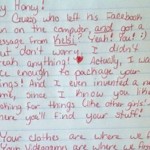 y Honey!
Guess who left his Facebook
on the computer, and got a
message from Kusi? Yeah! You! :)
But don't worry, I didn't
reak anything! ♥ Actually, I was
ice enough to package your
things! And I even invented a
since I know you like
shing for things (like other girls'
here you'll find your stuff!
Your clothes are where we f
r Videogames are where we fo